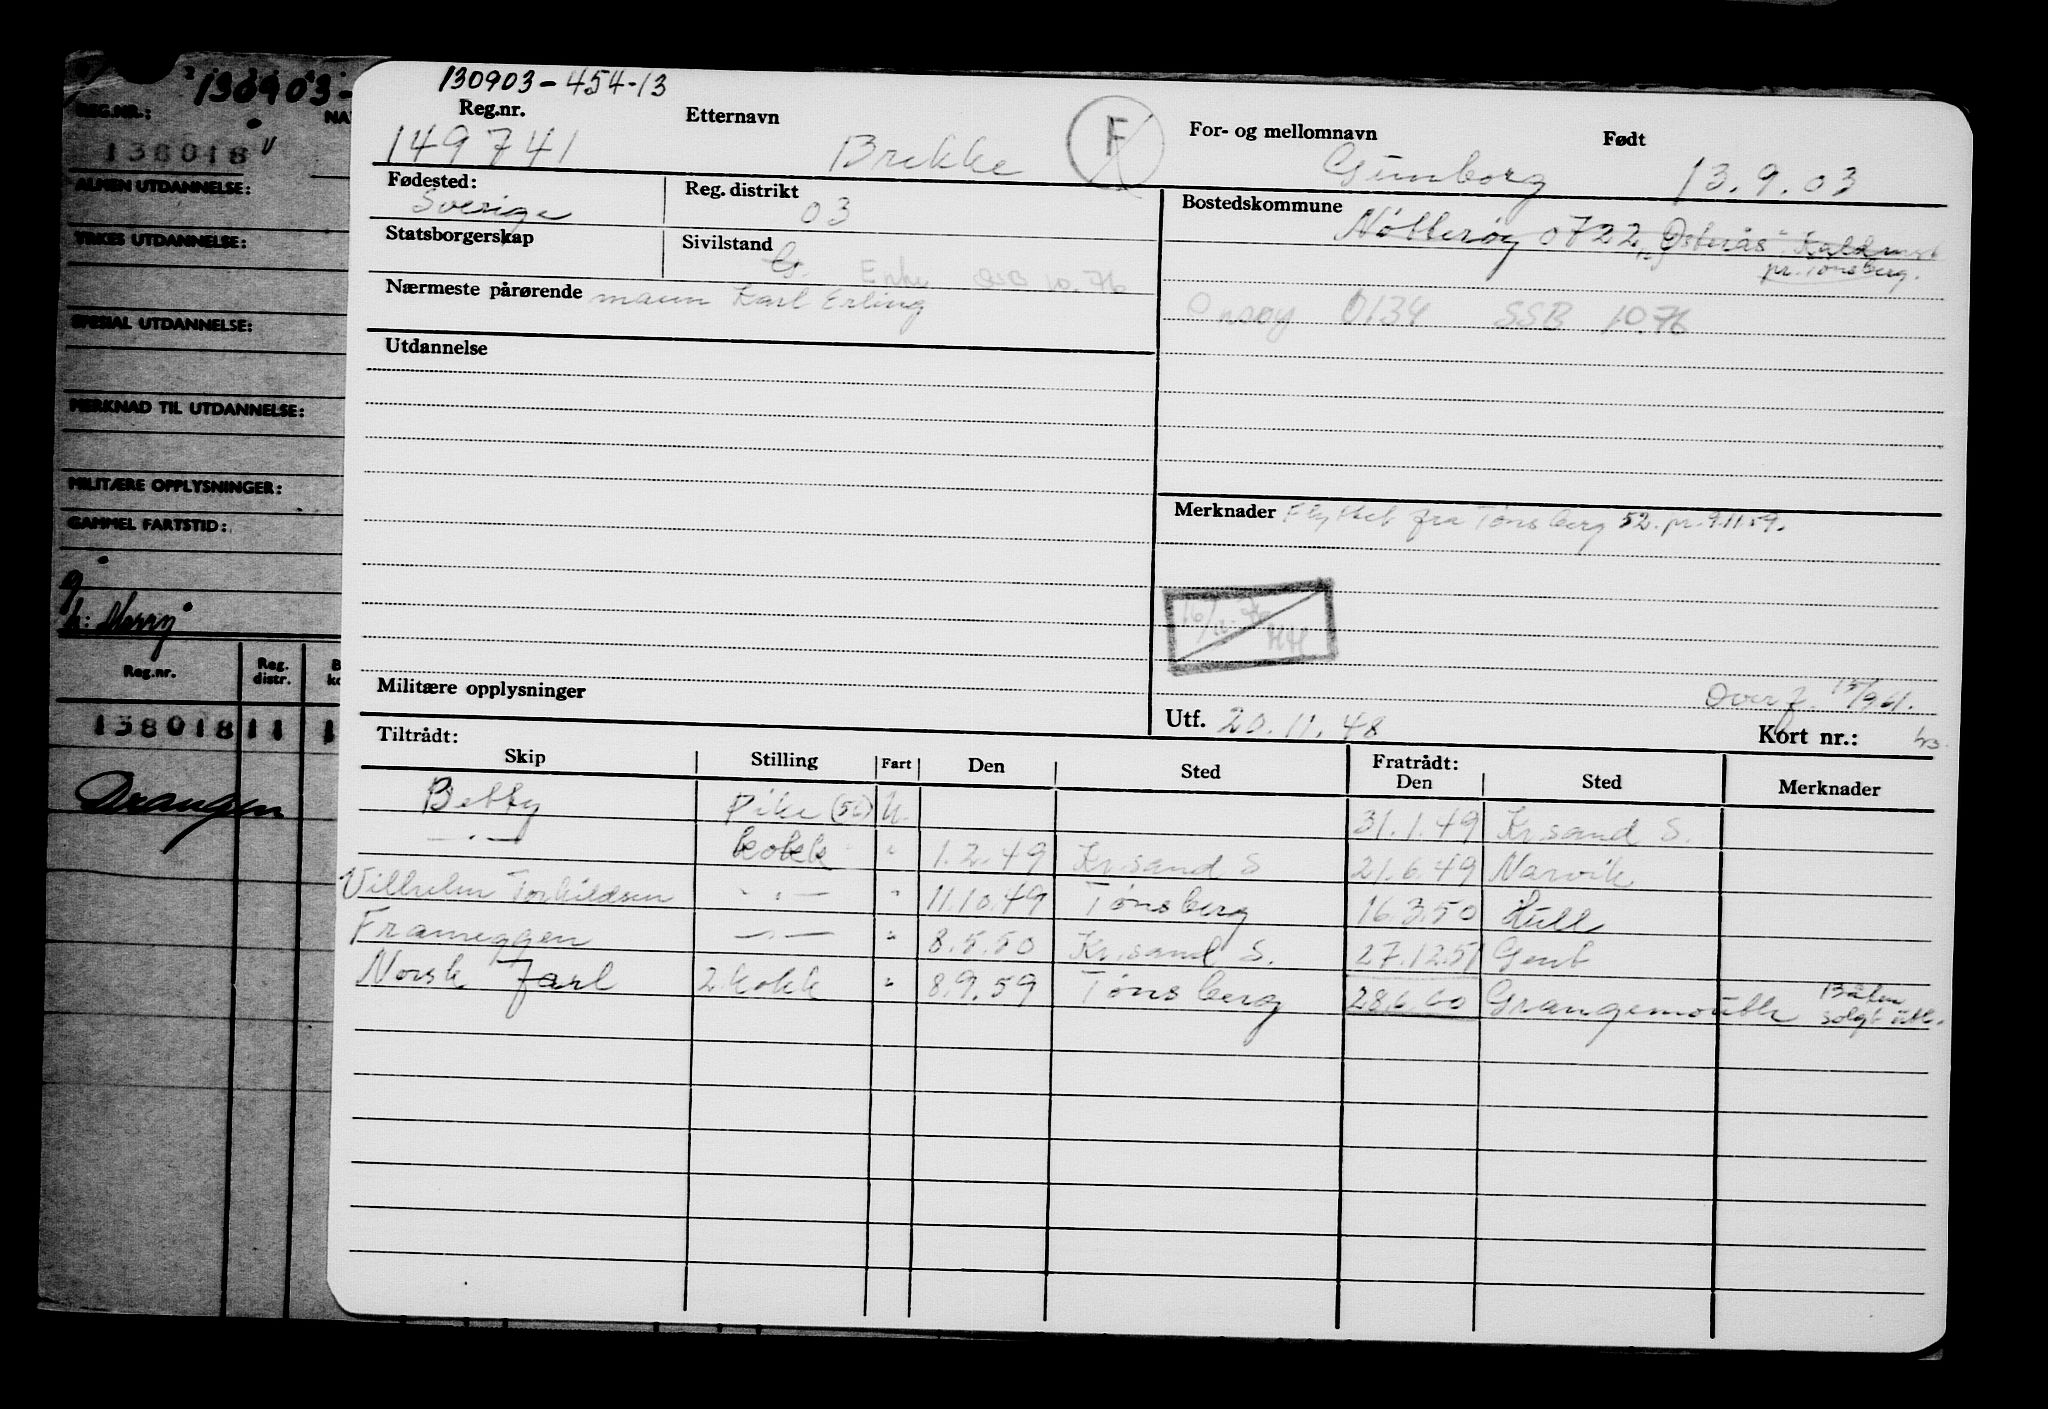 130903-
REG.NR.:
NA
138018
ALMEN UTDANNELSE:
YRKES UTDANNELSE:
SPESIAL UTDANNELSE:
MERKNAD TIL UTDANNELSE:
MILITÆRE OPPLYSNINGER:
GAMMEL FARTSTID:
g
h: Merry
Reg.nr. Reg. distr. B k
138018 11 1
Drangen
130903-454-13
Reg.nr. Etternavn F For- og mellomnavn Født
149741 Brekke Gunborg 13.9.03
Fødested: Sverige Reg. distrikt 03 Bostedskommune
Nøtterøy 0722 "Østerås"
pr. Tønsberg.
Statsborgerskap Sivilstand G.
Enke SSB 10.76
Nærmeste pårørende mann Karl Erling
Onsøy 0134 SSB 10.76
Utdannelse
Merknader Flyttet fra Tønsberg 52. pr. 9.11.59.
16/12-76
HH
Overf. 15/9 61.
Militære opplysninger
Utf. 20.11.48 Kort nr.:
Tiltrådt: Fratrådt:
Skip Stilling Fart Den Sted Den Sted Merknader
Betty Pike (52) U. 31.1.49 Kr.sand S.
—·— kokk " 1.2.49 Kr.sand S 21.6.49 Narvik
Vilhelm Torkildsen —·— " 11.10.49 Tønsberg 16.3.50 Hull
Frameggen —·— " 8.5.50 Kr.sand S. 27.12.51 Gent
Norsk Jarl 2.kokk " 8.9.59 Tønsberg 28.6.60 Grangemouth Båten solgt utl.